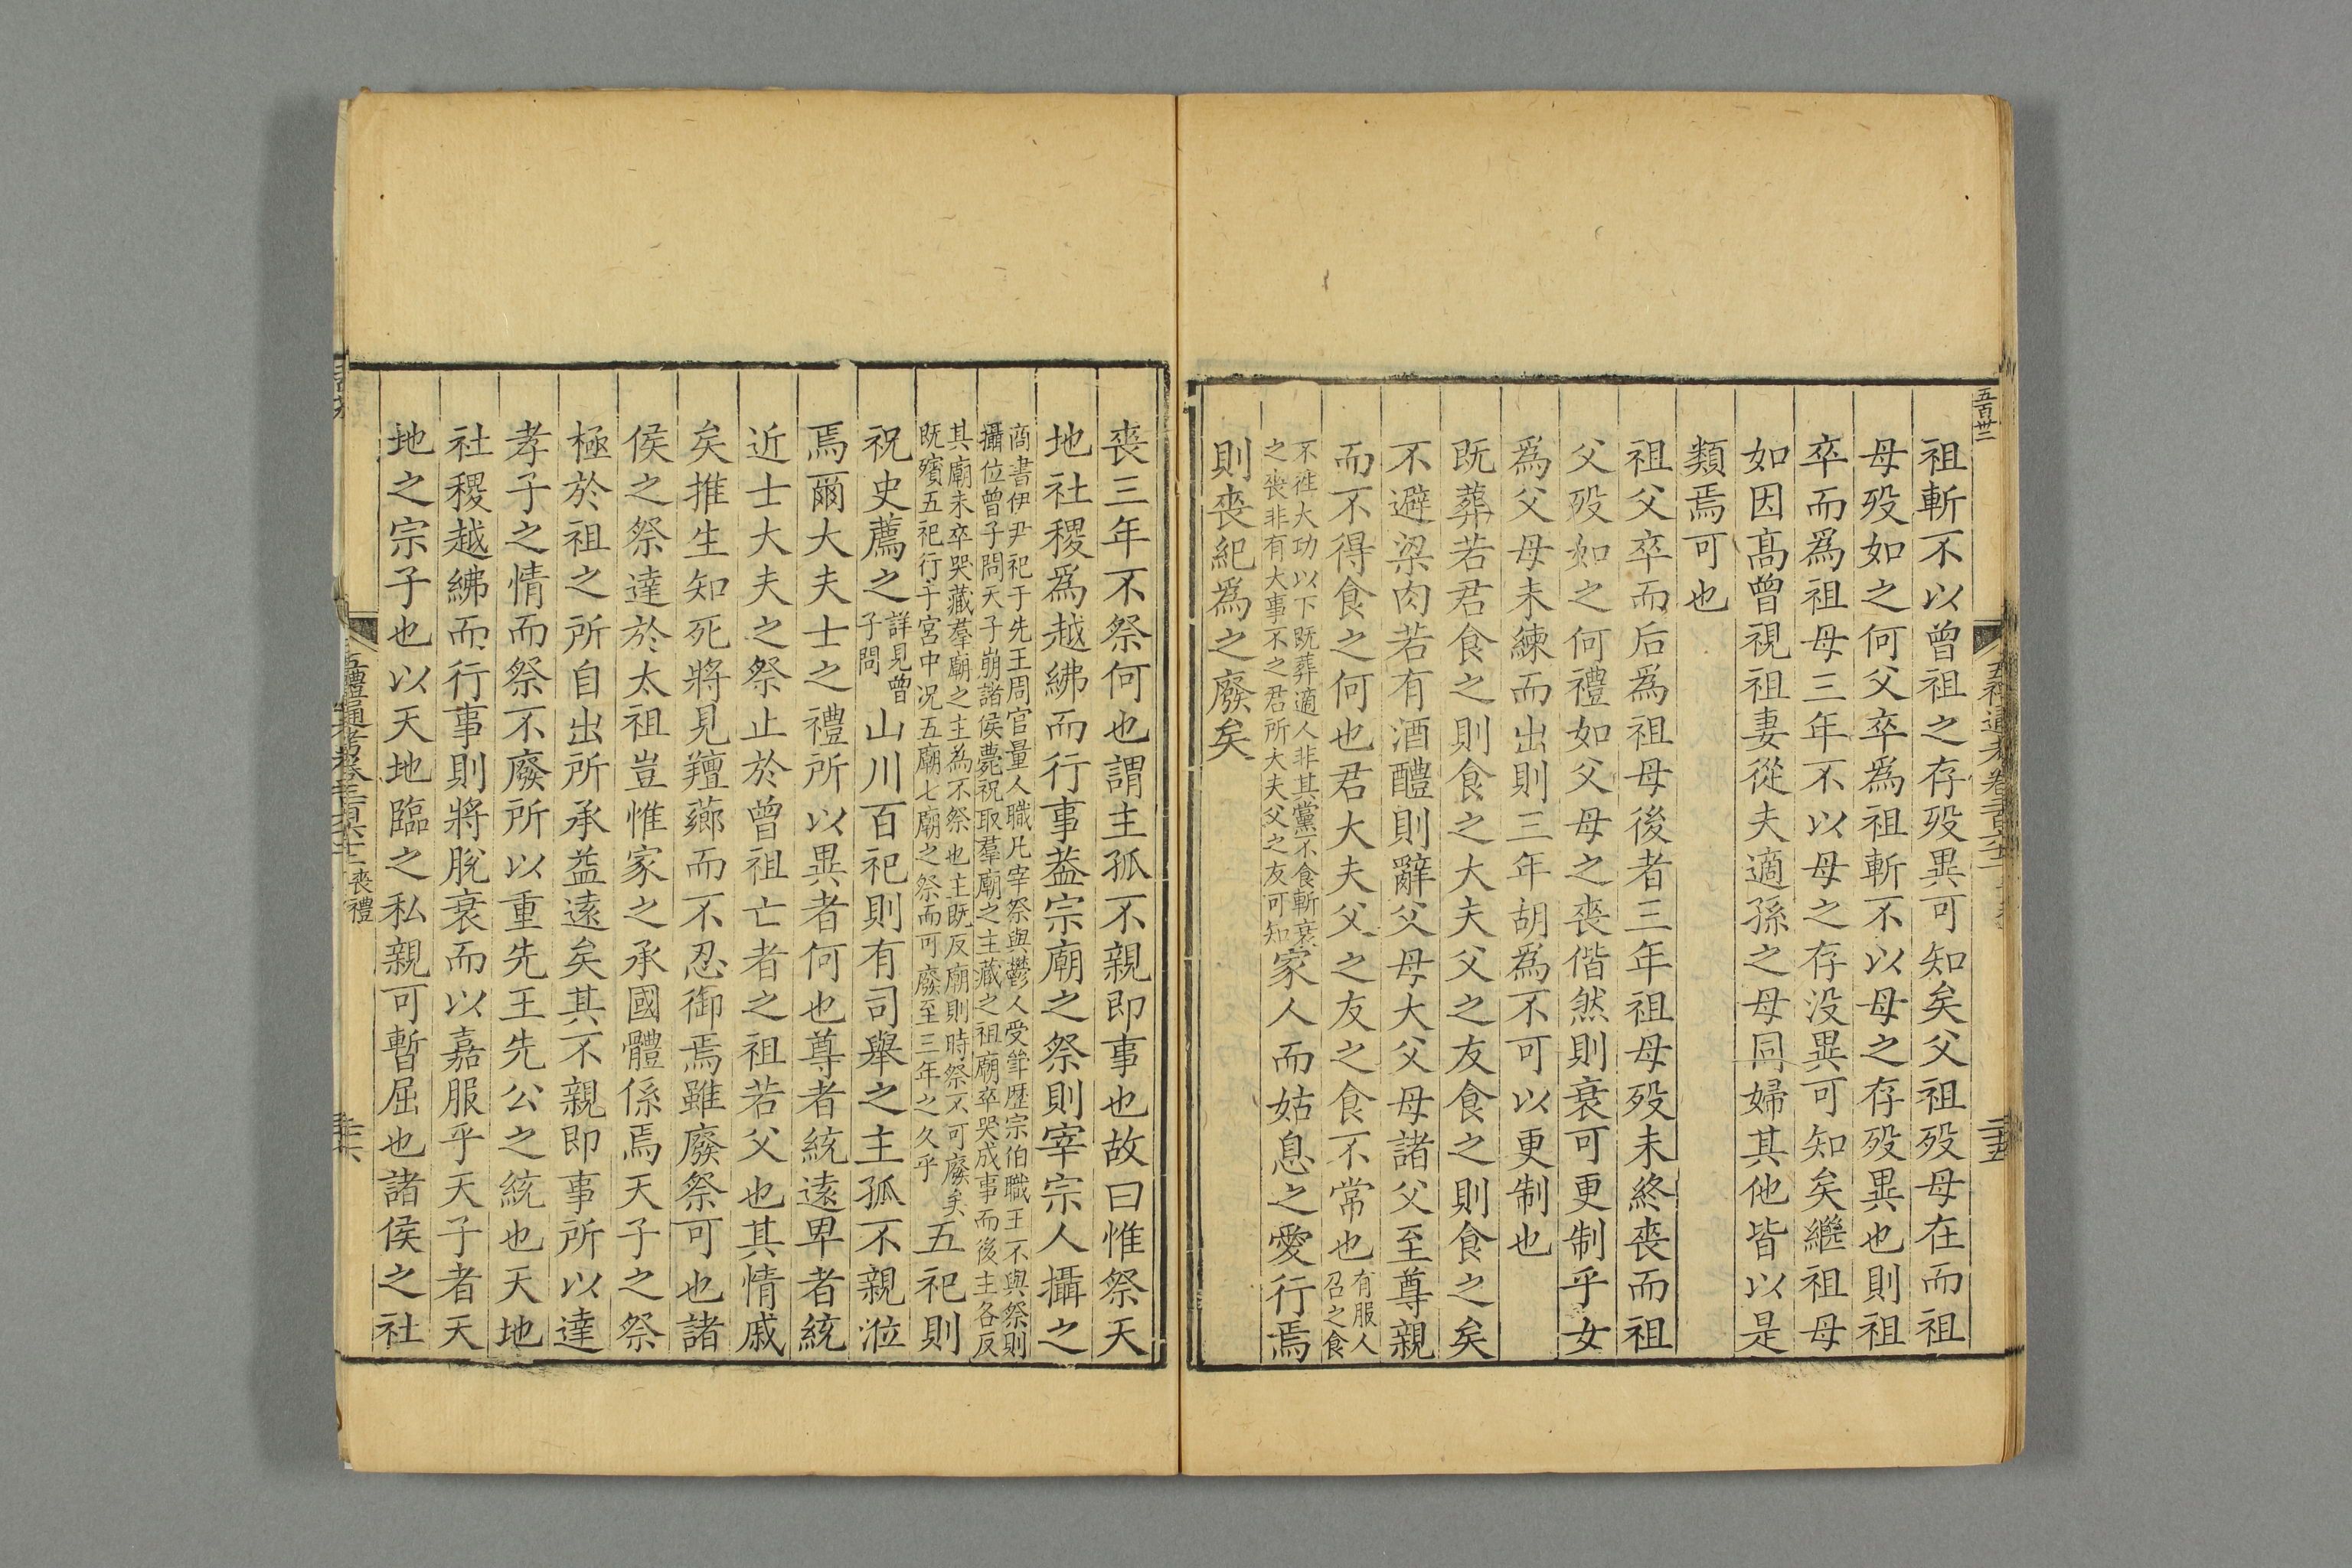 五百卅二
祖斬不以曾祖之存歿異可知矣父祖歿母在而祖
母歿如之何父卒爲祖斬不以母之存歿異也則祖
卒而爲祖母三年不以母之存没異可知矣繼祖母
如因高曾視祖妻從夫適孫之母同婦其他皆以是
類焉可也
祖父卒而后爲祖母後者三年祖母歿未終喪而祖
父歿如之何禮如父母之喪偕然則衰可更制乎女
爲父母未練而出則三年胡爲不可以更制也
既葬若君食之則食之大夫父之友食之則食之矣
不避粱肉若有酒醴則辭父母大父母諸父至尊親
而不得食之何也君大夫父之友之食不常也有服人召之食
不往大功以下既葬適人非其黨不食斬衰之喪非有大事不之君所大夫父之友可知家人而姑息之愛行焉
則喪紀爲之廢矣
喪三年不祭何也謂主孤不親即事也故曰惟祭天
地社稷爲越紼而行事葢宗廟之祭則宰宗人攝之
商書伊尹祀于先王周官量人職凡宰祭與鬱人受斝歷宗伯職王不與祭則
攝位曾子問天子崩諸侯薨祝取羣廟之主藏之祖廟卒哭成事而後主各反
其廟未卒哭藏羣廟之主為不祭也主既反廟則時祭不可廢矣
既殯五祀行于宮中况五廟七廟之祭而可廢至三年之久乎五祀則
祝史薦之詳見曾子問山川百祀則有司舉之主孤不親涖
焉爾大夫士之禮所以異者何也尊者統遠卑者統
近士大夫之祭止於曾祖亡者之祖若父也其情戚
矣推生知死將見羶薌而不忍御焉雖廢祭可也諸
侯之祭達於太祖豈惟家之承國體係焉天子之祭
極於祖之所自出所承益遠矣其不親即事所以達
孝子之情而祭不廢所以重先王先公之統也天地
社稷越紼而行事則將脫衰而以嘉服乎天子者天
地之宗子也以天地臨之私親可暫屈也諸侯之社
五禮通考卷 喪禮